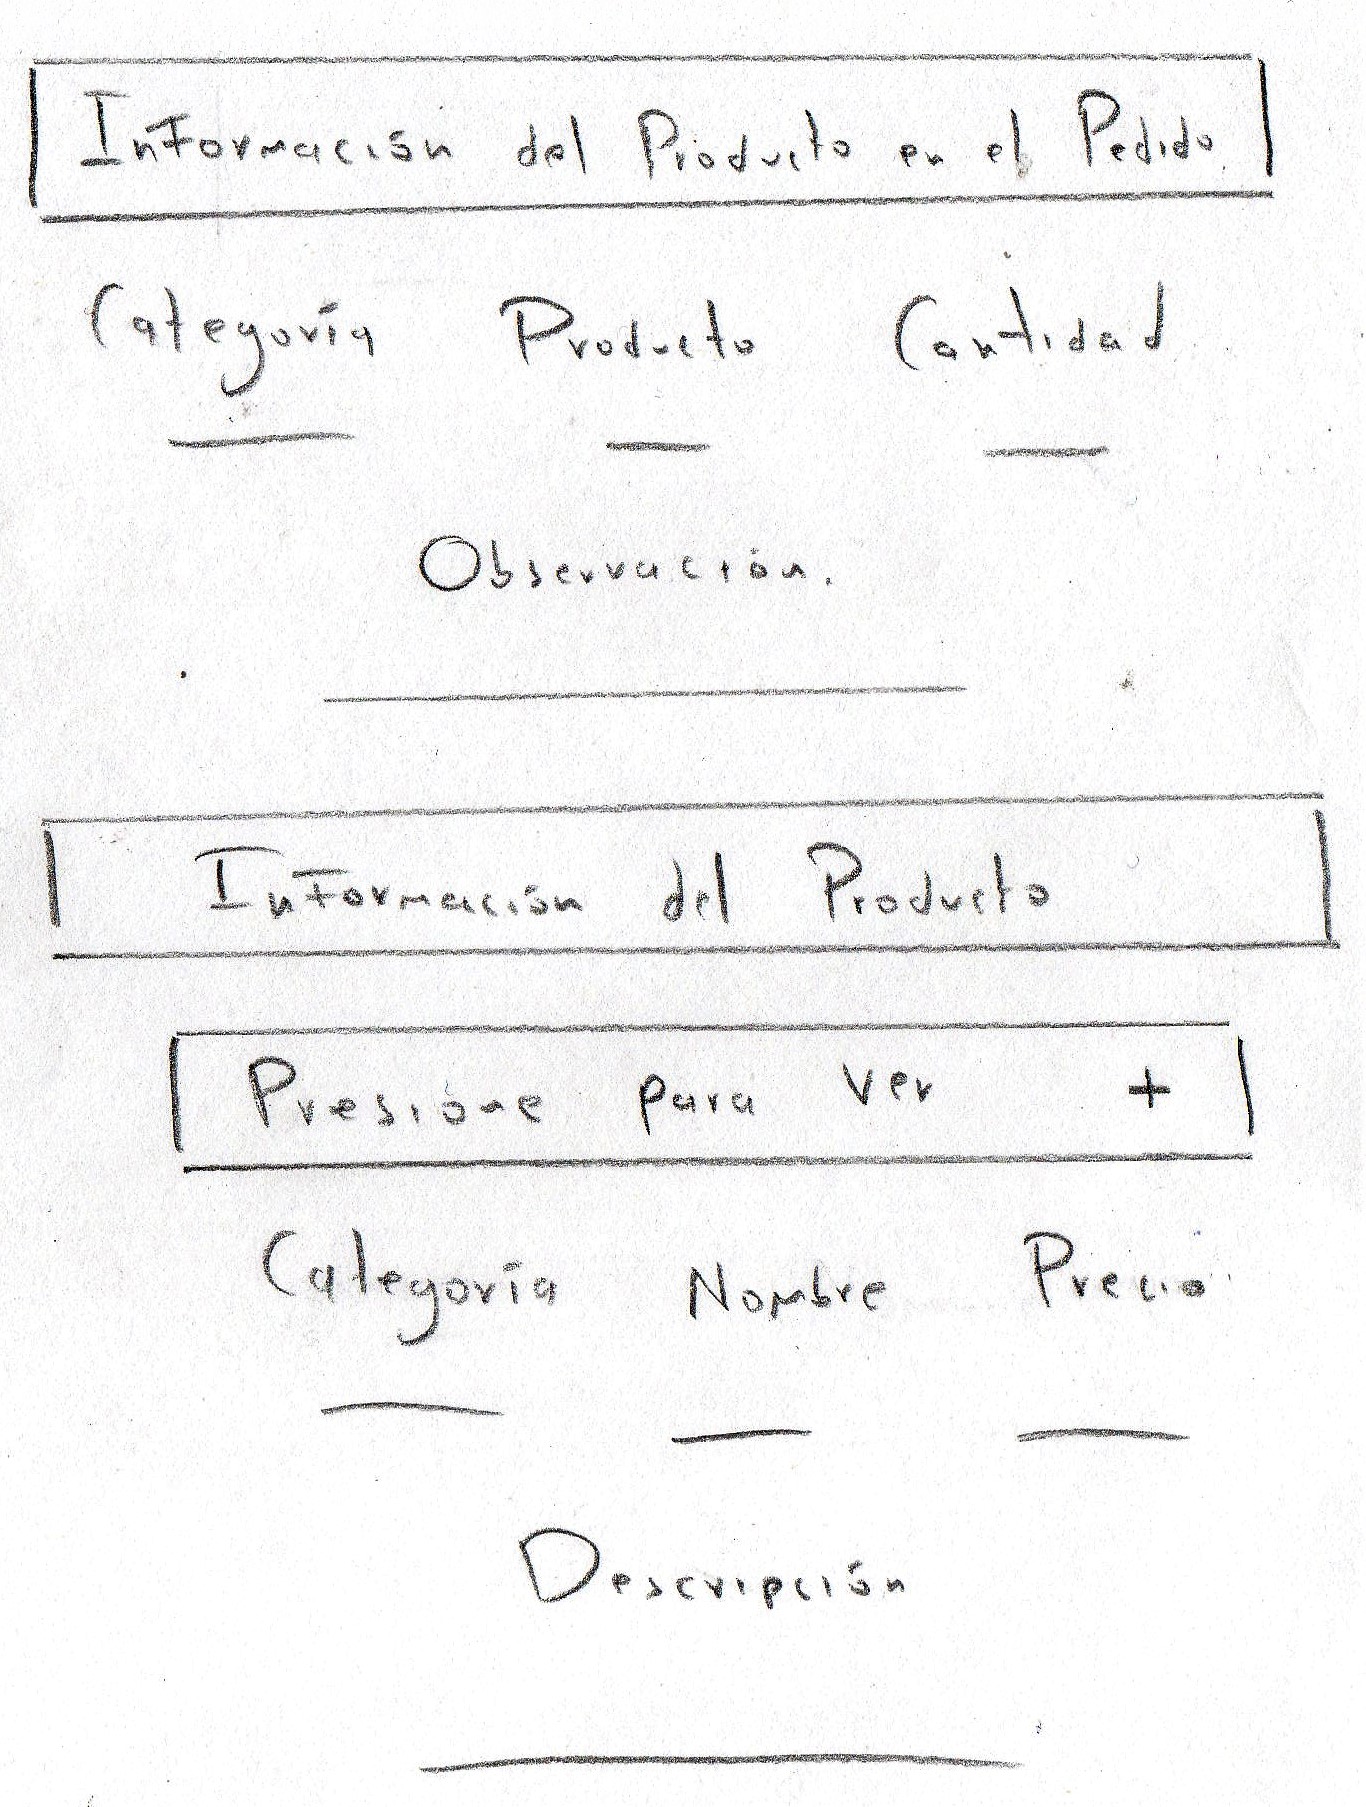 Información del Producto en el Pedido.
Categoría Producto Cantidad
Observación.
Información del Producto
Presione para ver +
Categoría Nombre Precio
Descripción